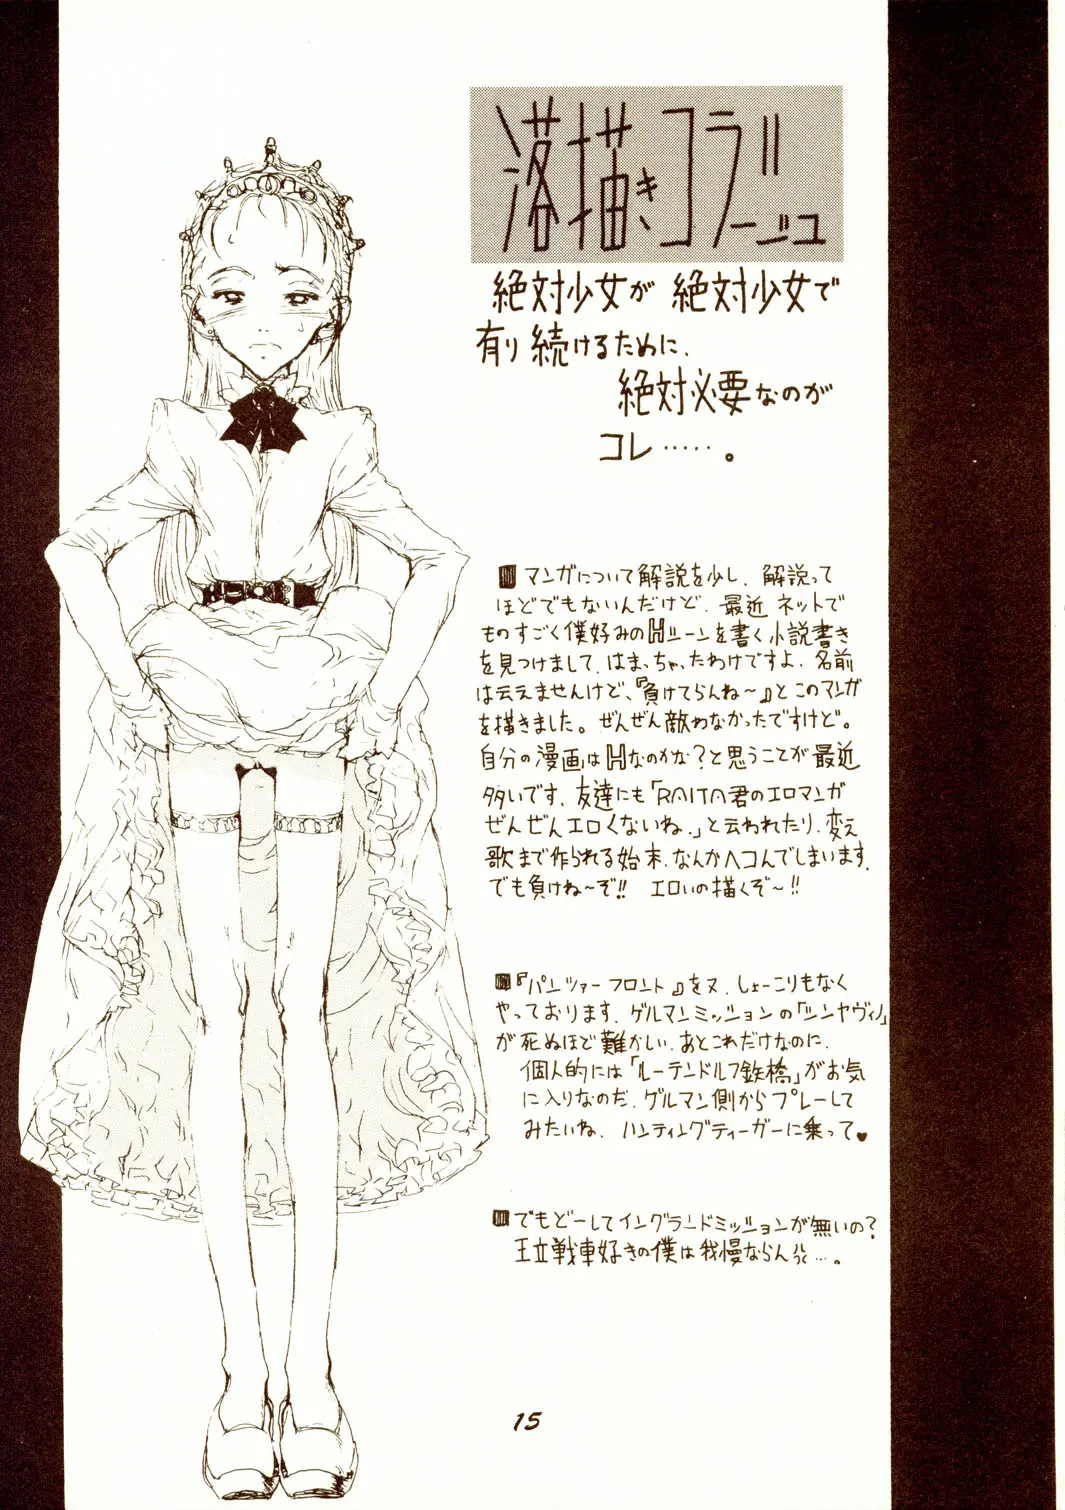 落描きコラージュ
絶対少女が 絶対少女で
有り続けるために、
絶対必要なのが
コレ……。
マンガについて解説を少し、解説って
ほどでもないんだけど、最近ネットで
ものすごく僕好みのHシーンを書く小説書き
を見つけまして、はまっちゃったわけですよ、名前
は云えませんけど、『負けてらんね〜』とこのマンガ
を描きました。ぜんぜん敵わなかったですけど。
自分の漫画はHなのかな?と思うことが最近
多いです、友達にも「RAITA君のエロマンガ
ぜんぜんエロくないね、」と云われたり、変え
歌まで作られる始末、なんかヘコんでしまいます、
でも負けね〜ぞ!! エロいの描くぞ〜!!
『パンツァーフロント』をヌ、しょーこりもなく
やっております、ゲルマンミッションの「シンヤヴィノ」
が死ぬほど難かしい、あとこれだけなのに、
個人的には「ルーデンドルフ鉄橋」がお気
に入りなのだ、ゲルマン側からプレーして
みたいね、ハンティングティーガーに乗って♥
でもどーしてイングランドミッションが無いの?
王立戦車好きの僕は我慢ならん…。
15